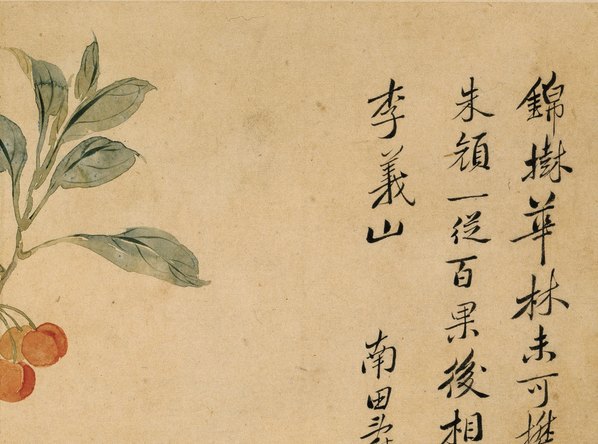 錦樹華林未可攀
朱顏一從百果後相
李義山
南田壽